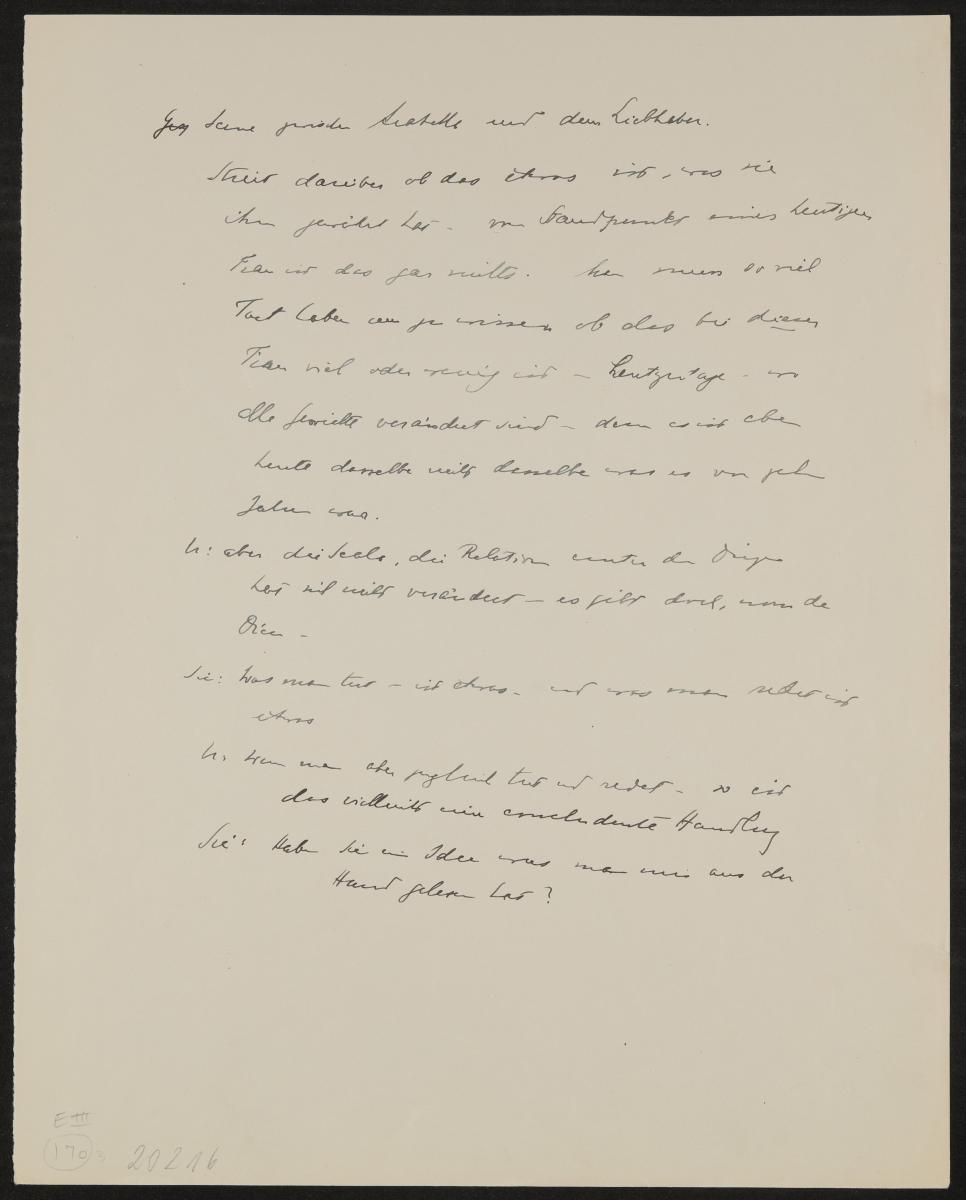 Scene zwischen Arabella und dem Liebhaber.
Streit darüber ob das etwas ist, was sie
ihm gewährt hat – vom Standpunkt einer heutigen
Frau ist das gar nichts. Man muss so viel
Tact haben um zu wissen ob das bei dieser
Frau viel oder wenig ist – heutzutage – wo
alle Gewichte verändert sind – denn es ist eben
heute dasselbe nicht dasselbe was es vor zehn
Jahren war.
Er: aber die Scala, die Relation unter den Dingen
hat sich nicht verändert – es gibt doch, wenn die
–
Sie: Was man tut – ist etwas – und was man redet ist
etwas
Er: Wenn man aber zugleich tut und redet – so ist
das vielleicht eine concludente Handlung
Sie: Haben Sie eine Idee was man mir aus der
Hand gelesen hat?
E III
170 3 20216